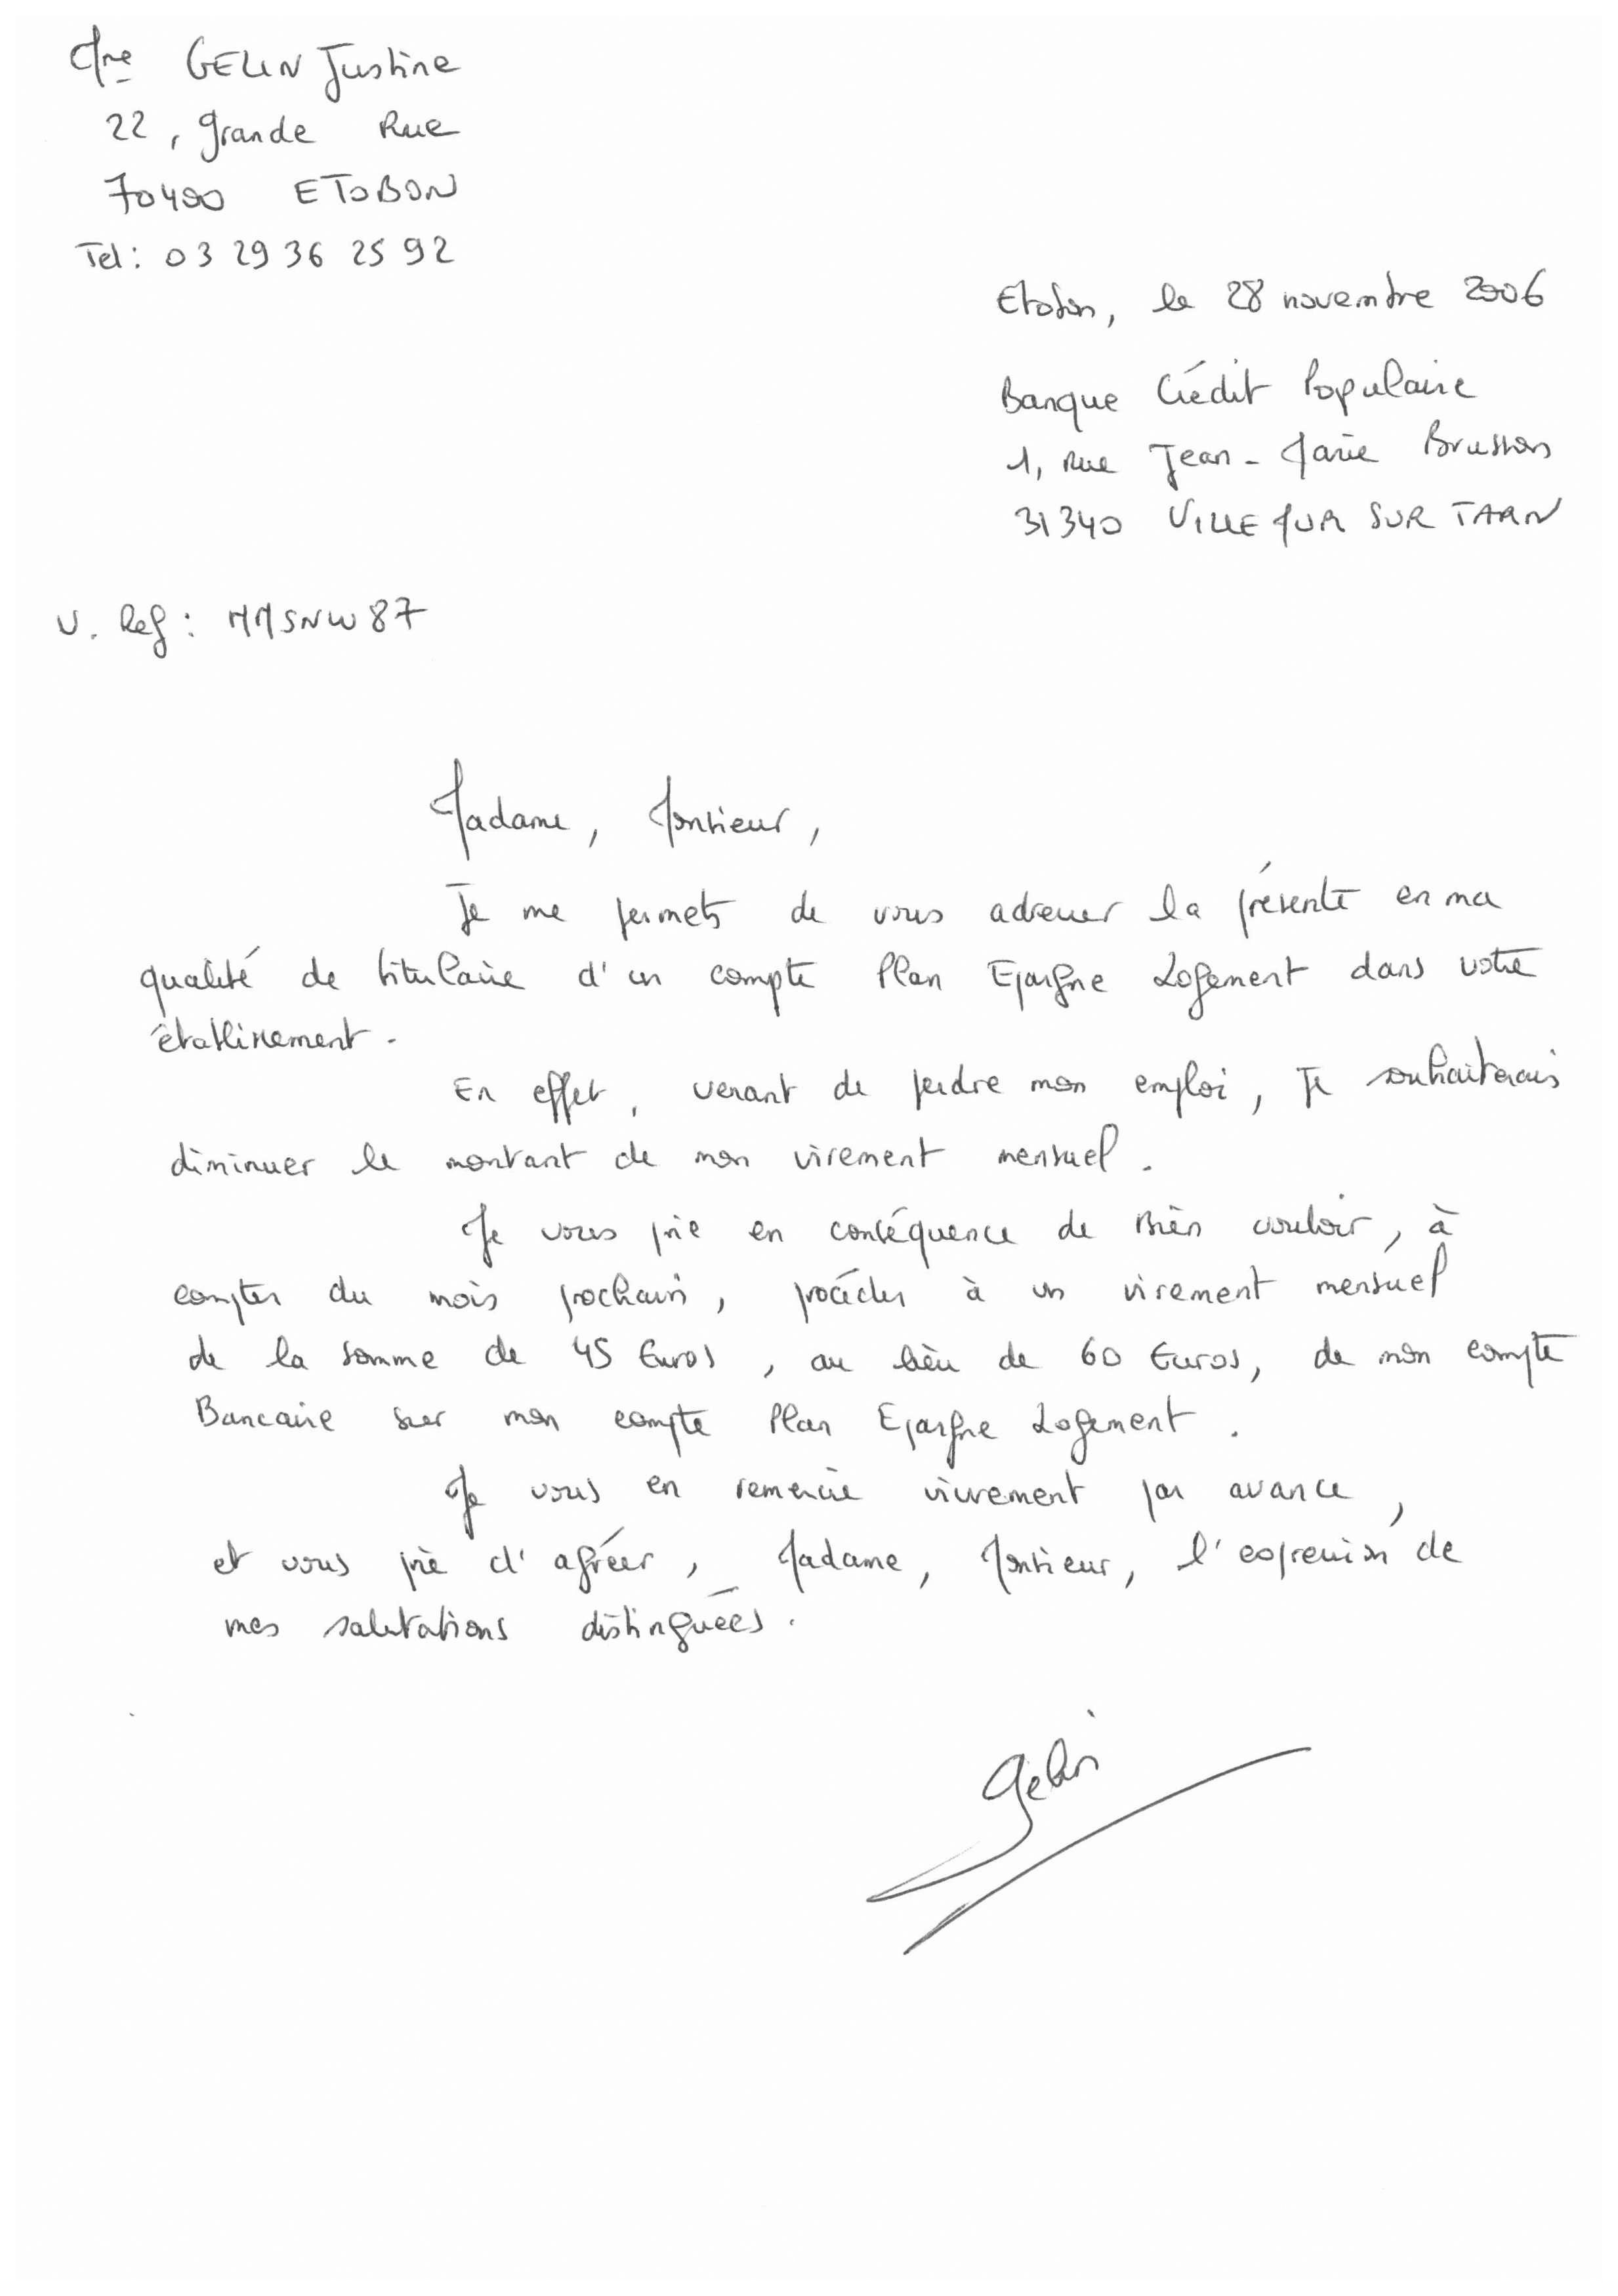 Mme GELIN Justine
22, grande Rue
70400 ETOBON
Tel: 03 29 36 25 92
Etobon, le 28 novembre 2006
Banque Crédit Populaire
1, Rue Jean-Marie Brusson
31340 VILLEMUR SUR TARN
V. Ref: MMSNW87
Madame, Monsieur,
Je me permets de vous adresser la présente en ma
qualité de titulaire d'un compte Plan Epargne Logement dans votre
établissement.
En effet, venant de perdre mon emploi, Je souhaiterais
diminuer le montant de mon virement mensuel.
Je vous prie en conséquence de Bien vouloir, à
compter du mois prochain, procéder à un virement mensuel
de la somme de 45 Euros, au lieu de 60 Euros, de mon compte
Bancaire sur mon compte Plan Epargne Logement.
Je vous en remercie vivement par avance,
et vous prie d'agréer, Madame, Monsieur, l'expression de
mes salutations distinguées.
Gelin